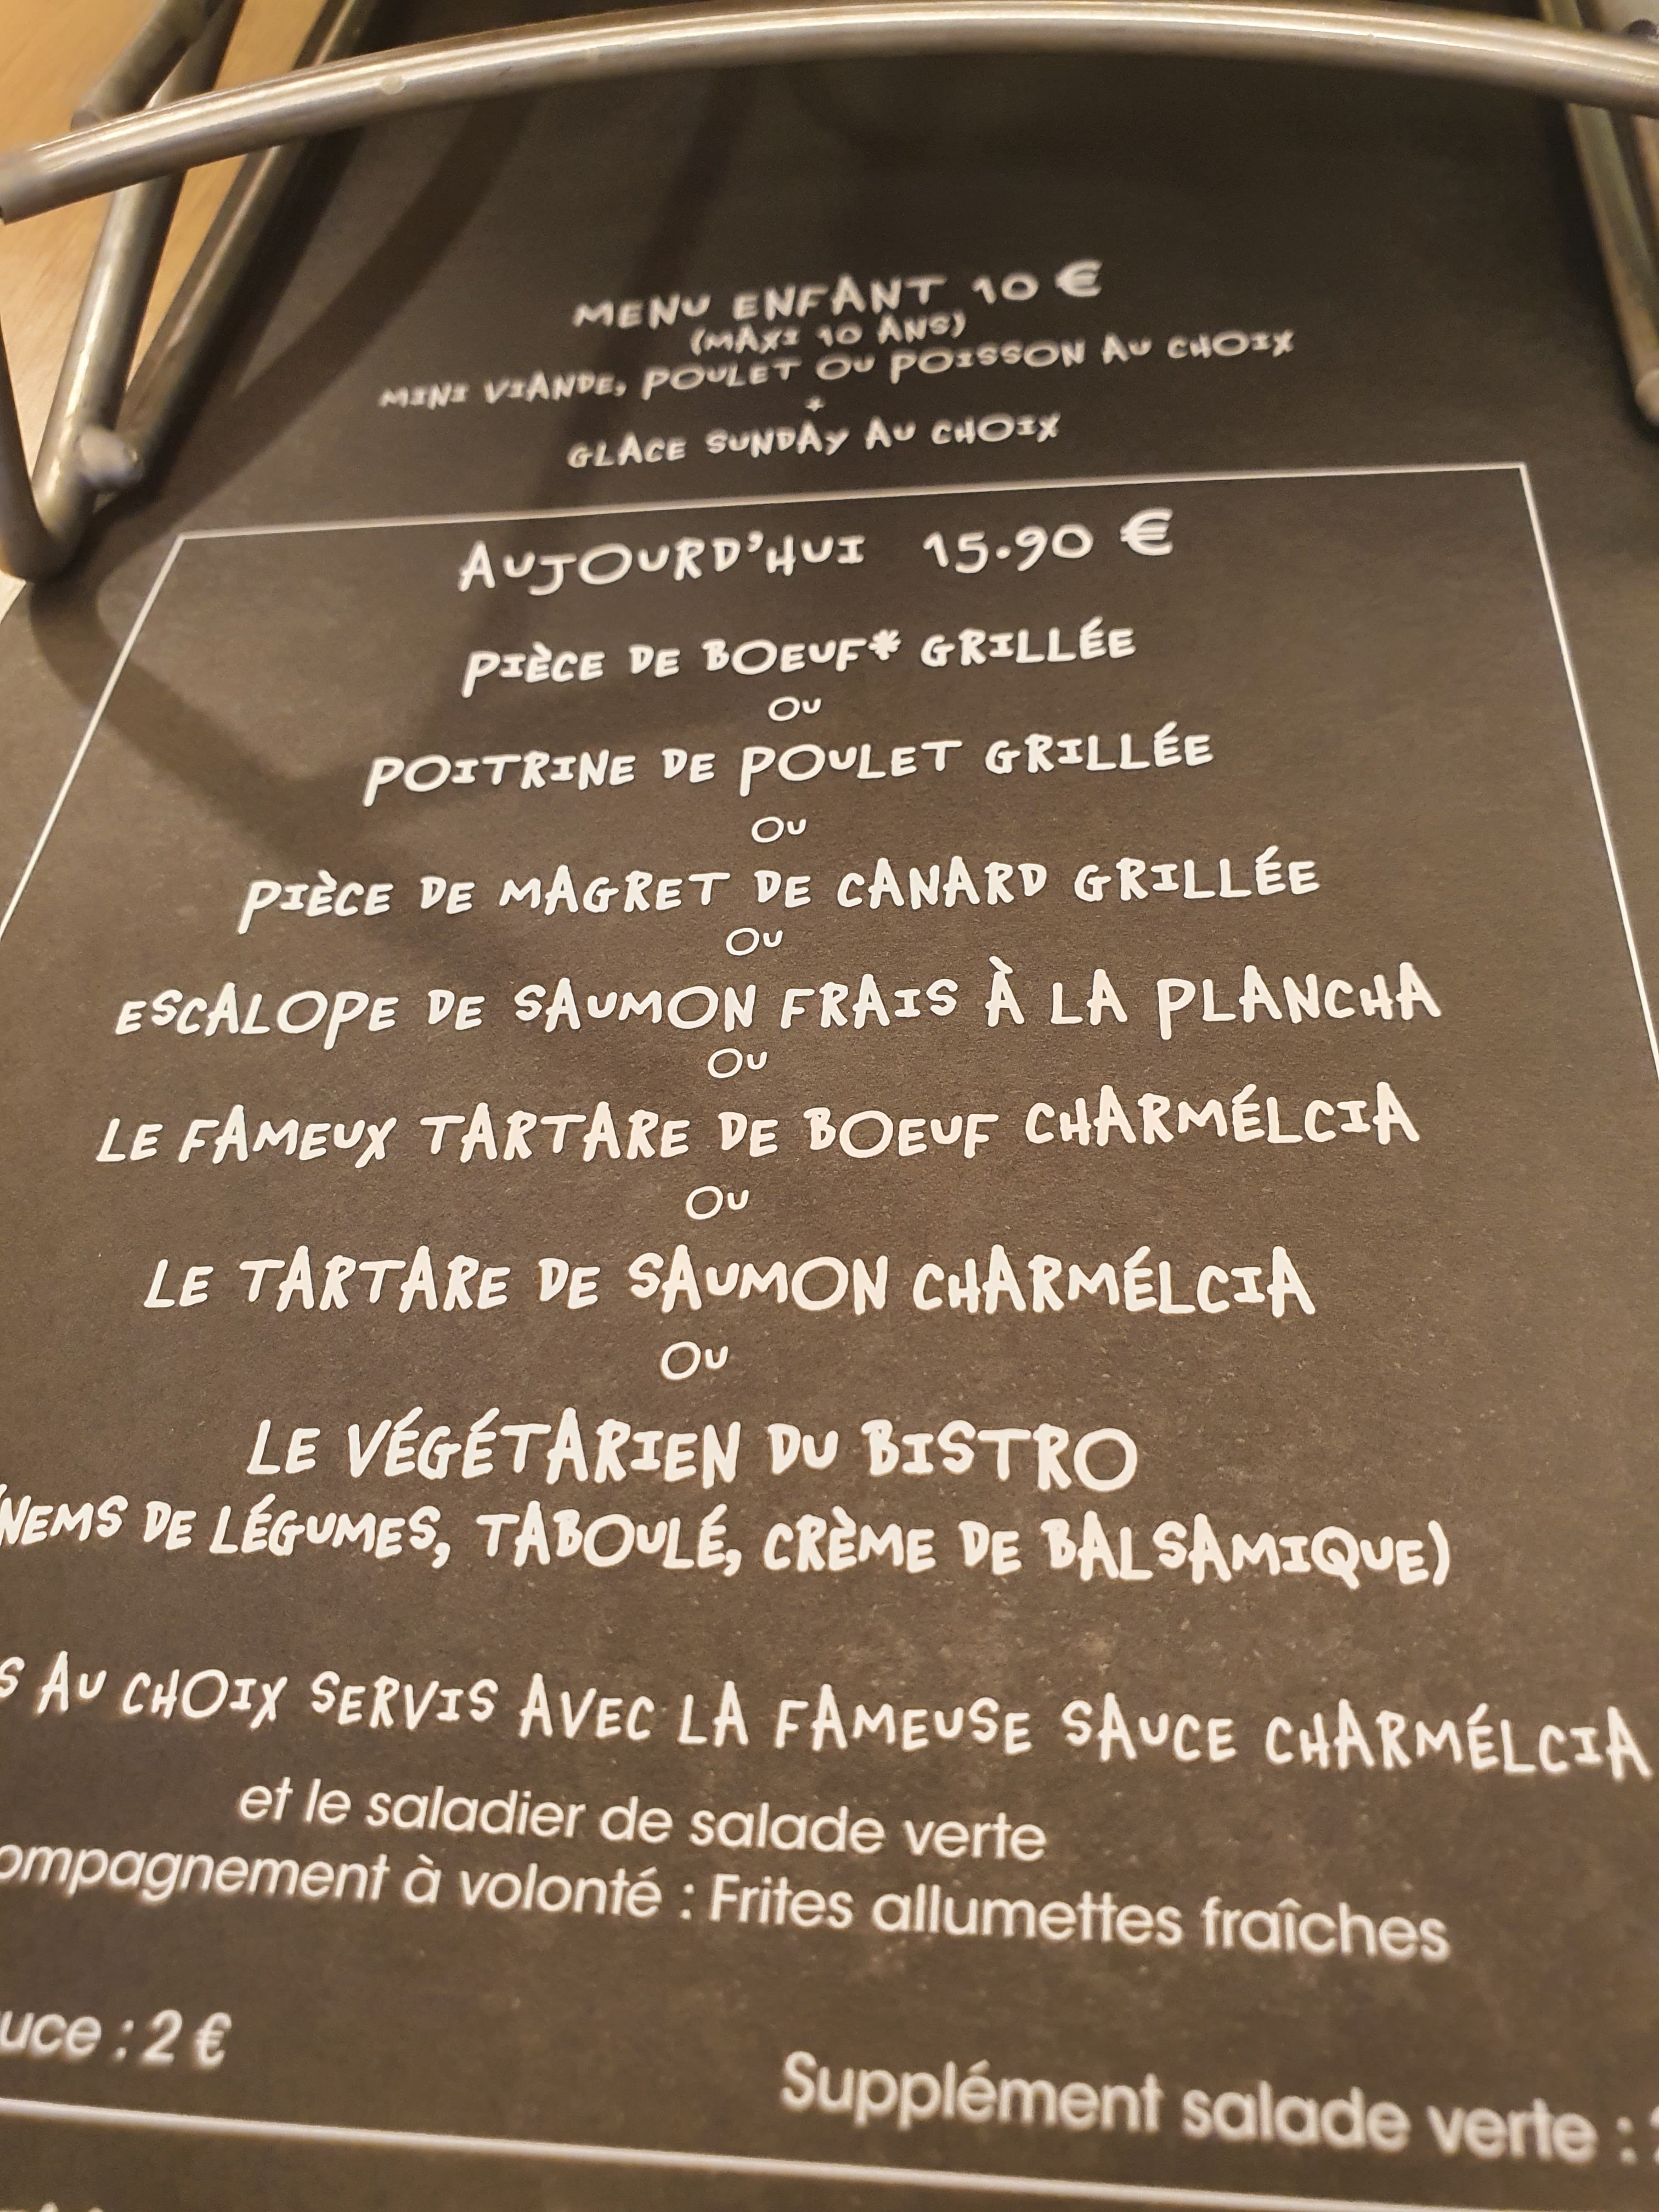 MENU ENFANT 10 €
(MAXI 10 ANS)
MINI VIANDE, POULET OU POISSON AU CHOIX
+
GLACE SUNDAY AU CHOIX
AUJOURD'HUI 15.90 €
PIÈCE DE BOEUF* GRILLÉE
OU
POITRINE DE POULET GRILLÉE
OU
PIÈCE DE MAGRET DE CANARD GRILLÉE
OU
ESCALOPE DE SAUMON FRAIS À LA PLANCHA
OU
LE FAMEUX TARTARE DE BOEUF CHARMÉLCIA
OU
LE TARTARE DE SAUMON CHARMÉLCIA
OU
LE VÉGÉTARIEN DU BISTRO
NEMS DE LÉGUMES, TABOULÉ, CRÈME DE BALSAMIQUE)
S AU CHOIX SERVIS AVEC LA FAMEUSE SAUCE CHARMÉLCIA
et le saladier de salade verte
ompagnement à volonté : Frites allumettes fraîches
uce : 2 €
Supplément salade verte :